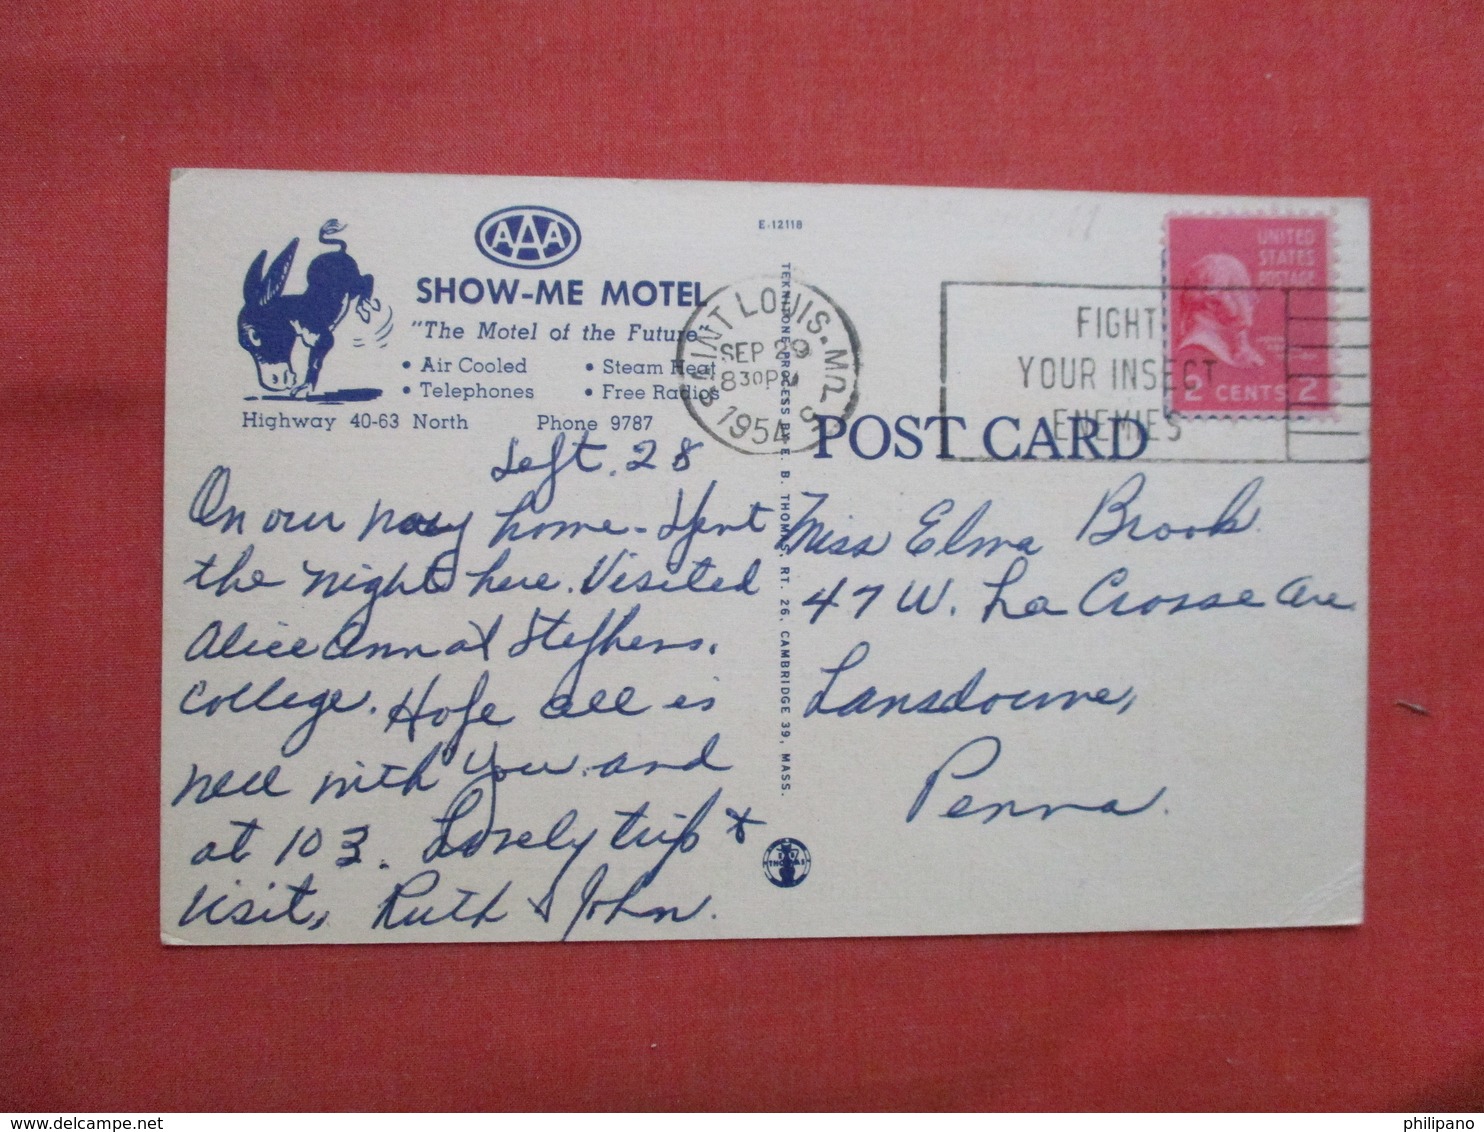 AAA
SHOW-ME MOTEL
"The Motel of the Future"
• Air Cooled • Steam Heat
• Telephones • Free Radios
Highway 40-63 North Phone 9787
Sept. 28
On our way home - Spent
the night here. Visited
Alice Ann at Stephens.
College. Hope all is
well with you and
at 103. Lovely trip &
visit, Ruth & John.
E-12118
TEKNITONE PROCESS BY E. B. THOMAS, RT. 26, CAMBRIDGE 39, MASS.
THOMAS
SAINT LOUIS, MO.
SEP 29
8 30 PM
1954
FIGHT
YOUR INSECT
ENEMIES
UNITED
STATES
POSTAGE
2 CENTS 2
POST CARD
Miss Elma Brook
47 W. La Crosse Ave
Lansdowne,
Penna.
philipano
delcampe.net